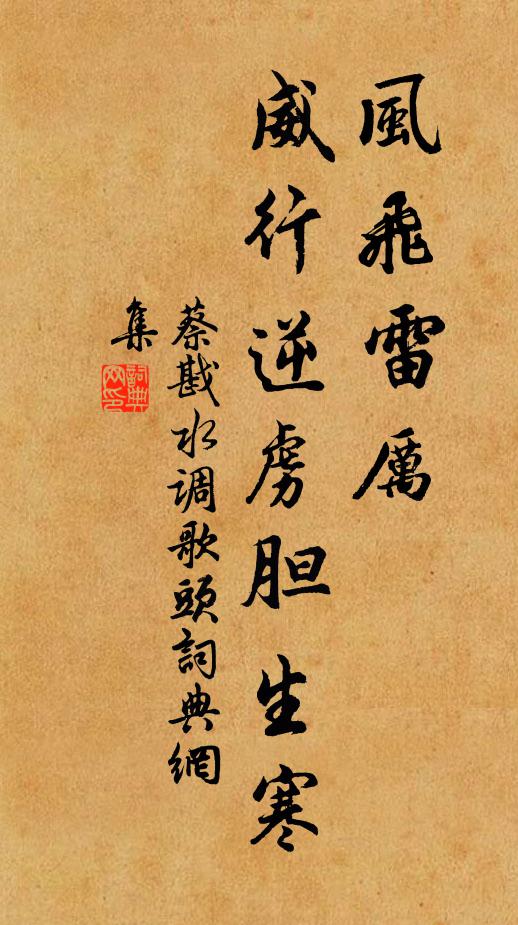 風飛雷厲
威行逆虜胆生寒
蔡戡水调歌頭詞典網
集
詞典
网印